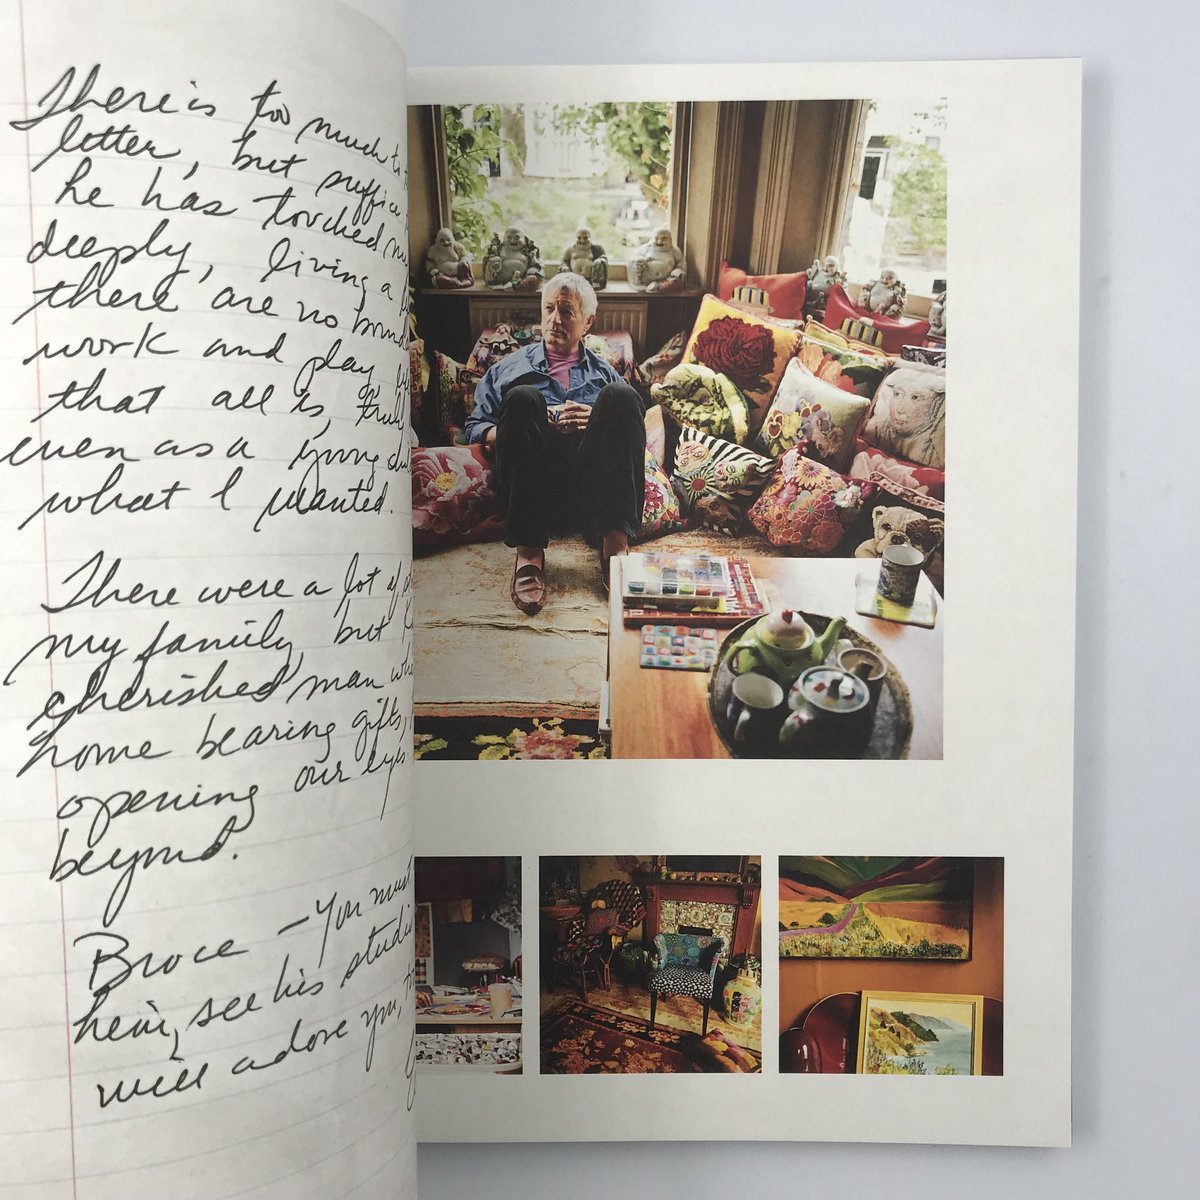 There is too much to
letter, but suffice
he has touched my
deeply, living a
there are no
work and play
that all is,
even as a young
what I wanted.
There were a lot of
my family, but
cherished man who
home bearing gifts,
opening our eyes
beyond.
Bruce – You must
him, see his studio
will adore you,